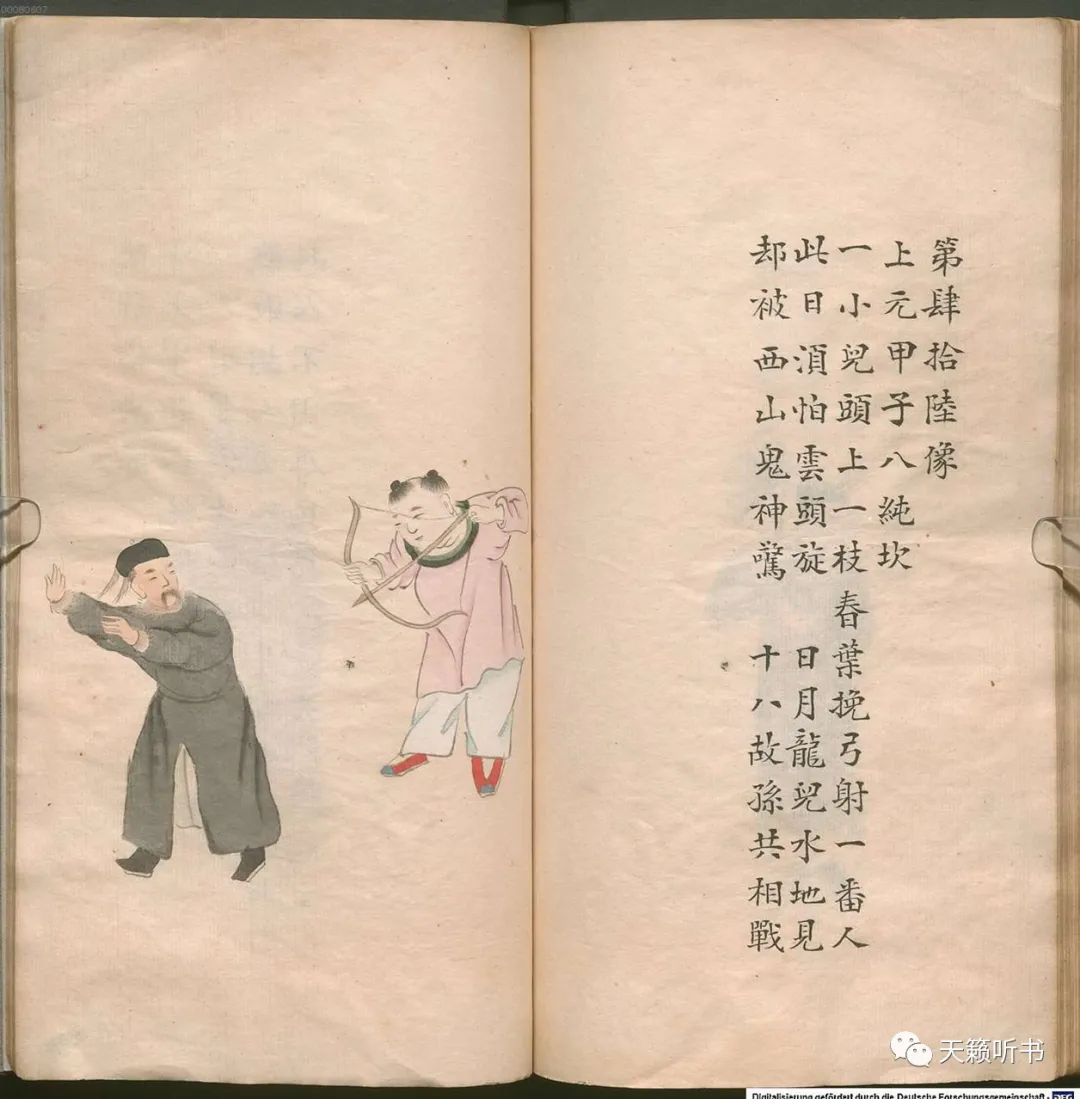 00080607
第肆拾陸像
上元甲子八純坎
一小兒頭上一枝春葉挽弓射一番人
此日須怕雲頭旋 日月龍兒水地見
却被西山鬼神驚 十八故孫共相戰
天籁听书
Digitalisierung gefördert durch die Deutsche Forschungsgemeinschaft - DFG